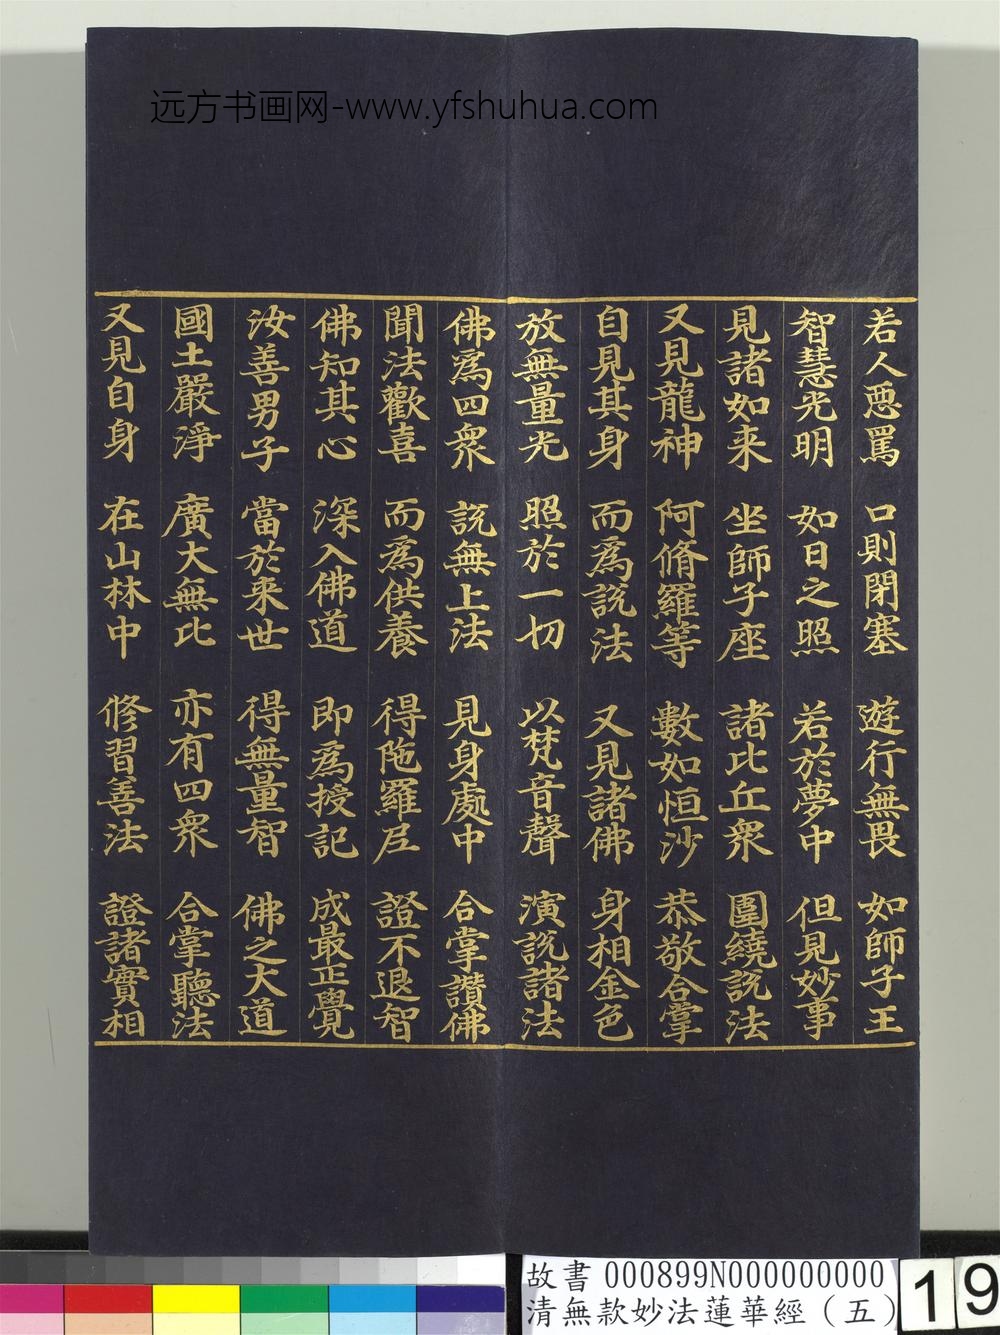 远方书画网-www.yfshuhua.com
若人惡罵 口則閉塞 遊行無畏 如師子王
智慧光明 如日之照 若於夢中 但見妙事
見諸如来 坐師子座 諸比丘衆 圍繞說法
又見龍神 阿脩羅等 數如恒沙 恭敬合掌
自見其身 而為說法 又見諸佛 身相金色
放無量光 照於一切 以梵音聲 演說諸法
佛為四衆 說無上法 見身處中 合掌讚佛
聞法歡喜 而為供養 得陁羅尼 證不退智
佛知其心 深入佛道 即為授記 成最正覺
汝善男子 當於来世 得無量智 佛之大道
國土嚴淨 廣大無比 亦有四衆 合掌聽法
又見自身 在山林中 修習善法 證諸實相
故書 000899N000000000
清無款妙法蓮華經（五）
19